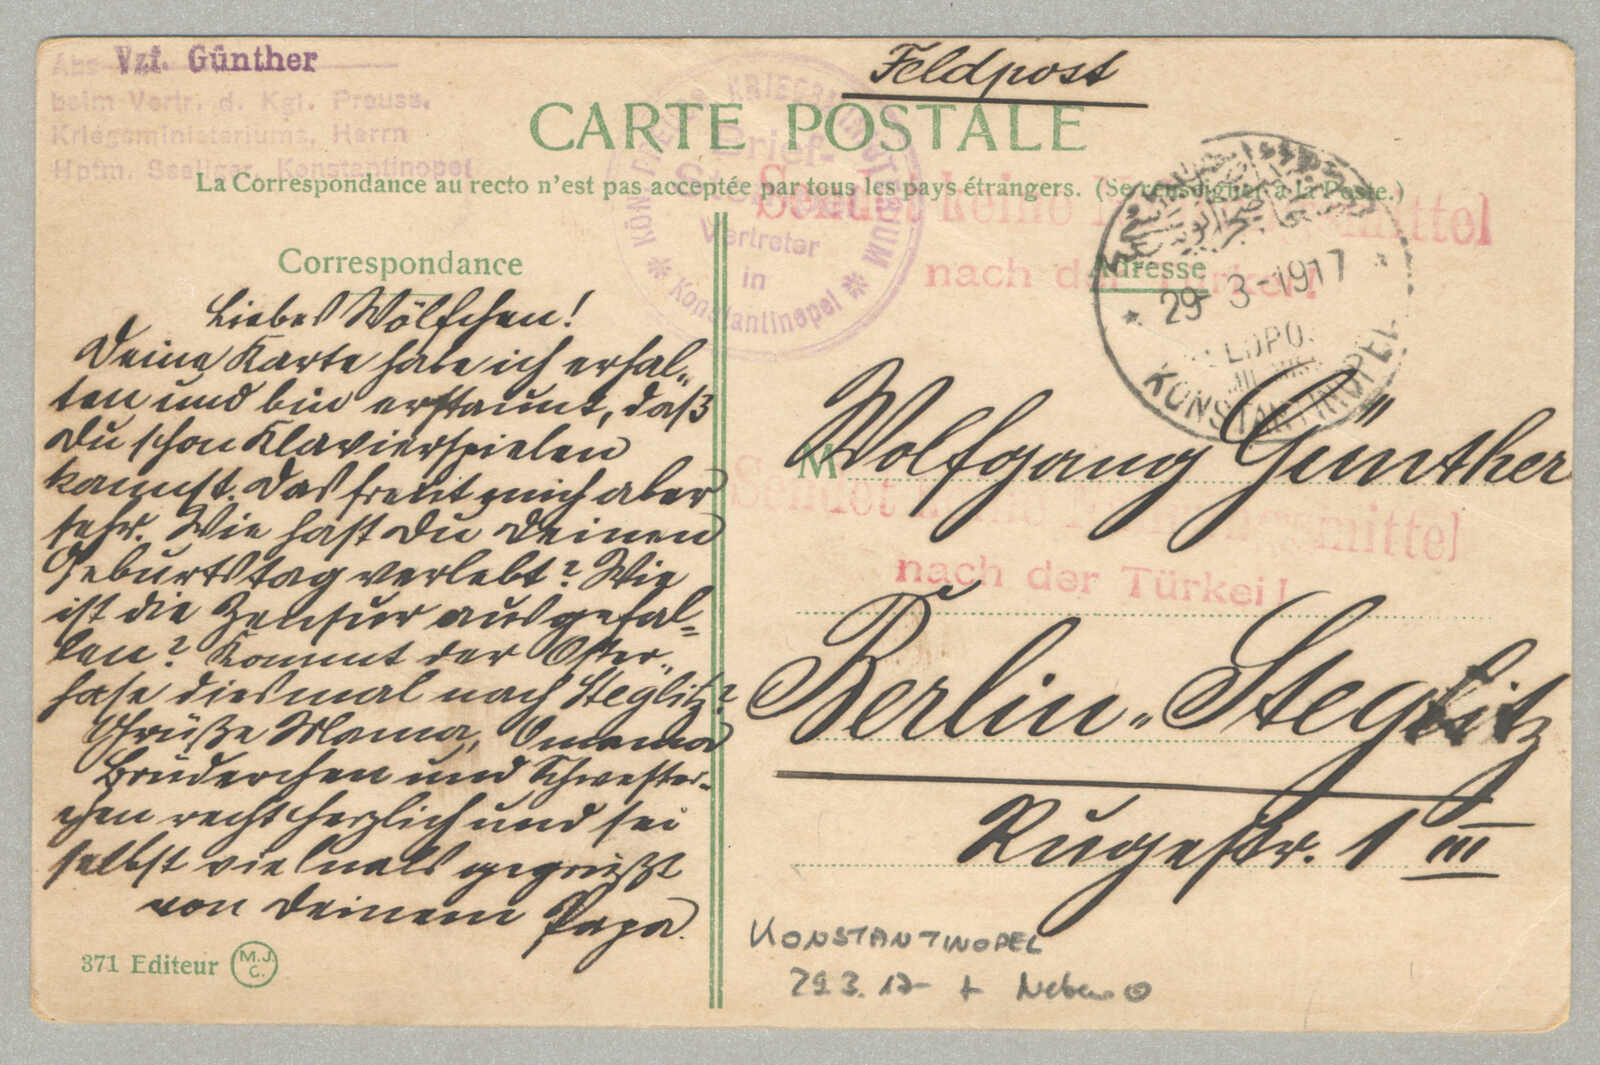 Vzf. Günther
Abs
beim Vertr. d. Kgl. Preuss.
Kriegsministeriums, Herrn
Hptm. Seeliger, Konstantinopel
Feldpost
CARTE POSTALE
La Correspondance au recto n'est pas acceptée par tous les pays étrangers. (Se renseigner à la Poste.)
KÖN. PREUSS. KRIEGSMINISTERIUM
Brief-
Stempel
Vertreter
in
* Konstantinopel *
Sendet keine Nahrungsmittel
nach der Türkei!
29-3-1917
FELDPO.
KONSTANTINOPEL
Correspondance
Liebes Wölfchen!
Deine Karte habe ich erhal-
ten und bin erstaunt, daß
Du schon Klavierspielen
kannst. Das freut mich aber
sehr. Wie hast Du Deinen
Geburtstag verlebt? Wie
ist die Zensur ausgefal-
len? Kommt der Oster-
hase diesmal nach Steglitz?
Grüße Mama, Omama
Brüderchen und Schwester-
chen recht herzlich und sei
selbst vielmals gegrüßt
von Deinem Papa.
371 Editeur M.J.C.
Adresse
M
Wolfgang Günther
Sendet keine Nahrungsmittel
nach der Türkei!
Berlin-Steglitz
Rugestr. 1 III
KONSTANTINOPEL
29.3.17- + Neben